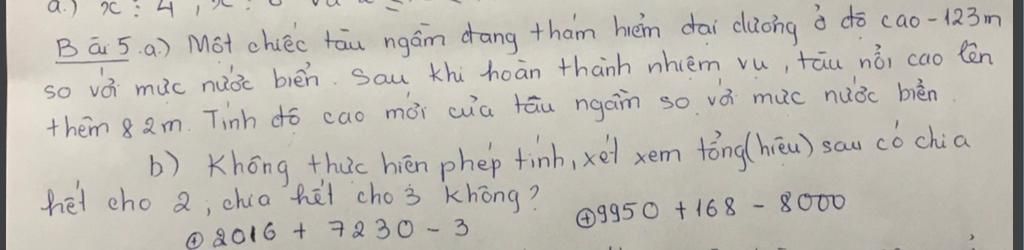 a.) x ⋮ 4, x
Bài 5. a.) Một chiếc tàu ngầm đang thám hiểm đại dương ở độ cao -123m
so với mực nước biển. Sau khi hoàn thành nhiệm vụ, tàu nổi cao lên
thêm 82m. Tính độ cao mới của tàu ngầm so với mực nước biển
b) Không thực hiện phép tính, xét xem tổng (hiệu) sau có chia
hết cho 2, chia hết cho 3 không?
⊕ 2016 + 7230 - 3 ⊕ 9950 + 168 - 8000